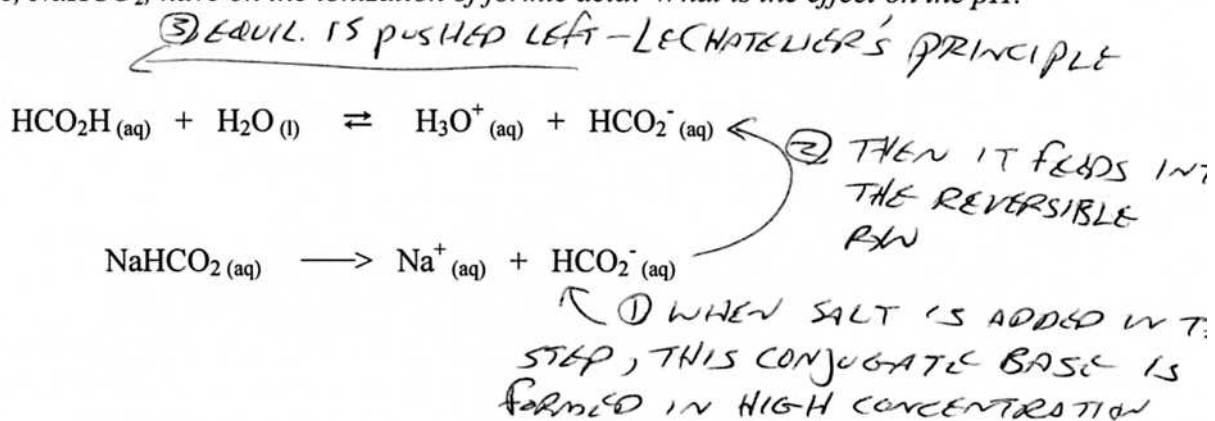 NaHCO₂, have on the ionization of formic acid? What is the effect on the pH?
③ EQUIL. IS PUSHED LEFT - LECHATELIER'S PRINCIPLE
HCO₂H (aq) + H₂O (l) ⇄ H₃O⁺ (aq) + HCO₂⁻ (aq)
② THEN IT FEEDS INT
THE REVERSIBLE
RXN
NaHCO₂ (aq) ⟶ Na⁺ (aq) + HCO₂⁻ (aq)
① WHEN SALT IS ADDED IN
STEP, THIS CONJUGATE BASE IS
FORMED IN HIGH CONCENTRATION